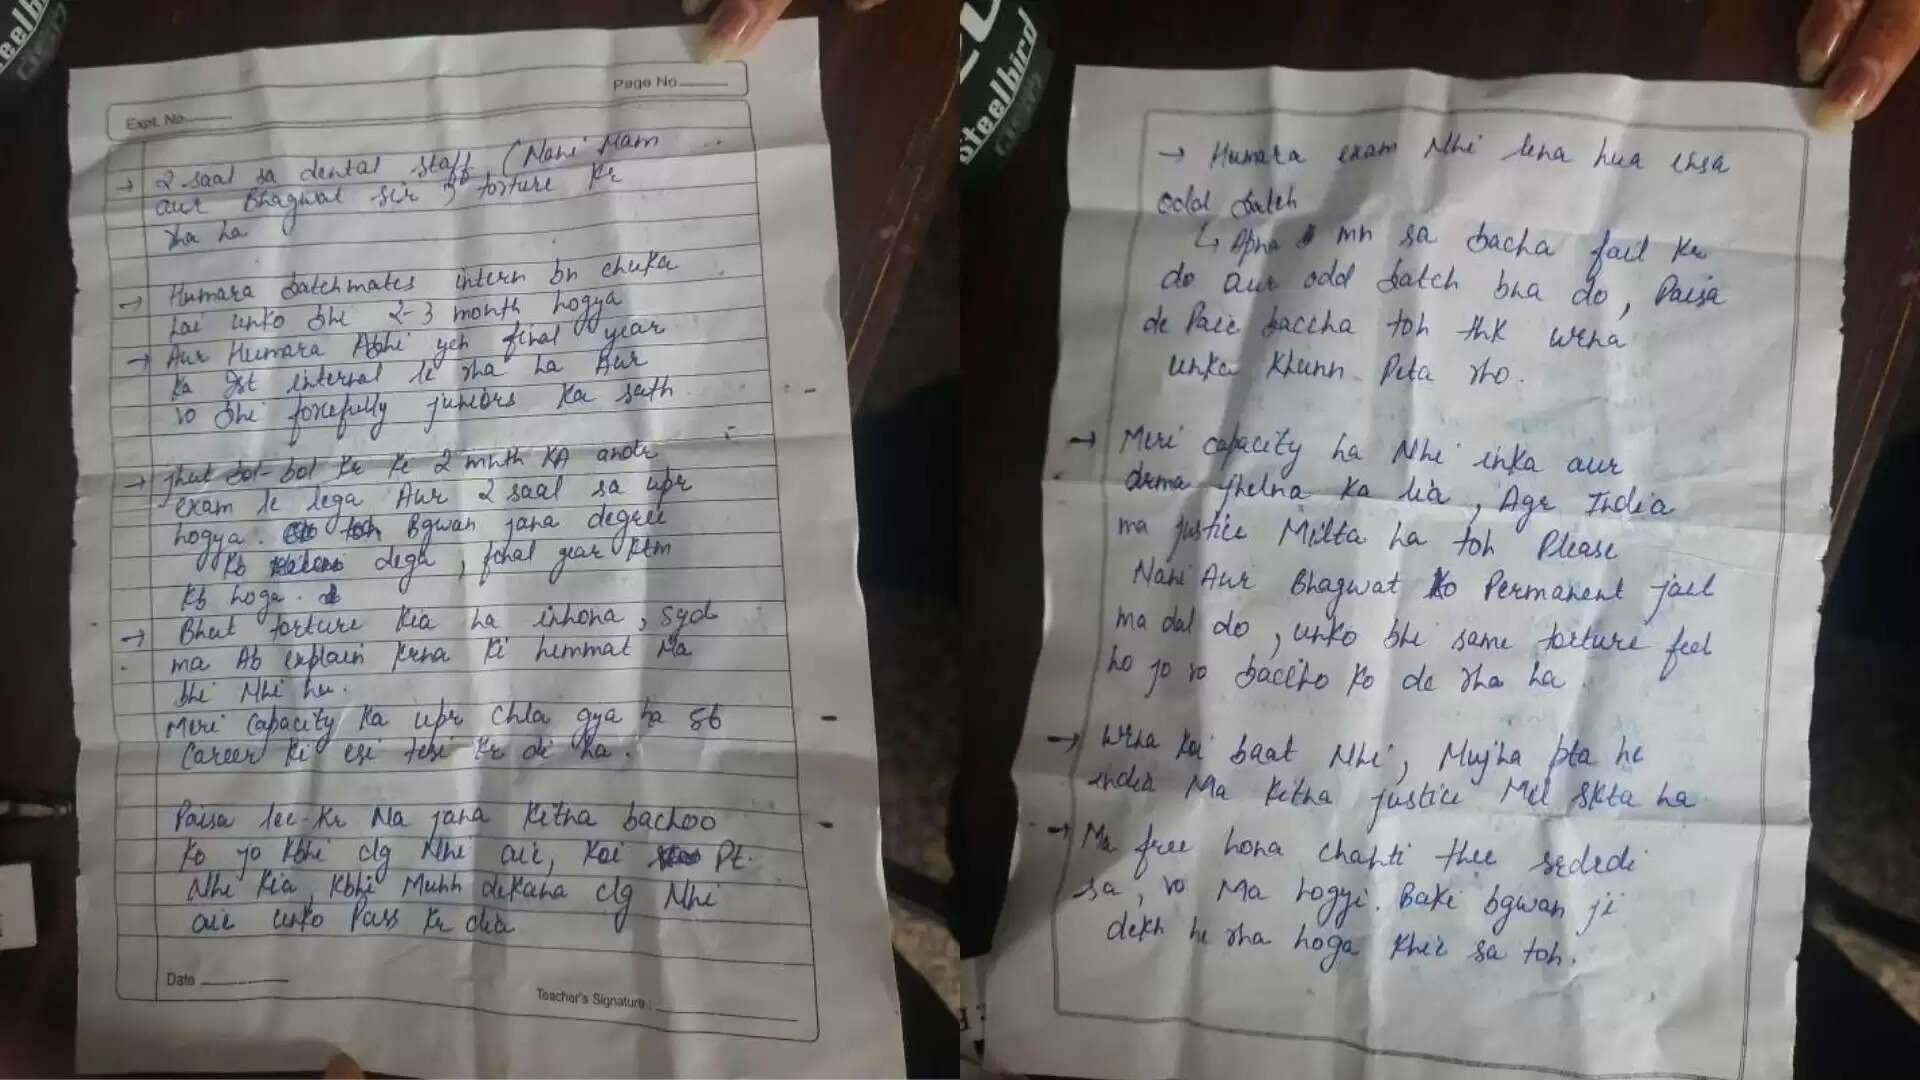 Page No
Expt. No
→ 2 saal sa dental staff (Nani Mam
aur Bhagwat sir } torture kr
rha ha
→ Humara batchmates intern bn chuka
hai unko bhi 2-3 month hogya
→ Aur Humara Abhi yeh final year
ka Ist internal le rha ha Aur
vo bhi forcefully juniors ka sath
→ jhut bol-bol kr ke 2 mnth KA andr
exam le lega Aur 2 saal sa upr
hogya. toh Bgwan jana degree
kb dega, final year ktm
kb hoga.
→ Bhut torture kia ha inhona, syd
ma Ab explain krna ki himmat Ma
bhi Nhi hu.
Meri capacity ka upr chla gya ha sb
Career ki esi tesi kr di ha.
Paisa lee-kr Na jana kitna bachoo
ko jo kbhi clg Nhi aie, koi Pt.
Nhi kia, kbhi Muhh dikana clg Nhi
aie unko Pass kr dia
Date
Teacher's Signature :
steelbird
→ Humara exam Nhi lena hua insa
odd batch
↳ Apna mn sa bacha fail kr
do aur odd batch bna do, Paisa
de Paie baccha toh thk wrna
unka khunn Pita rho.
→ Meri capacity ha Nhi inka aur
drma jhelna ka lia, Agr India
ma justice Milta ha toh Please
Nani Aur Bhagwat ko Permanent jail
ma dal do, unko bhi same torture feel
ho jo vo baccho ko de rha ha
→ wrna koi baat Nhi, Mujha pta he
india Ma kitna justice Mil skta ha
→ Ma free hona chahti thee
sa, vo Ma hogyi. Baki bgwan ji
dekh he rha hoga khi sa toh.